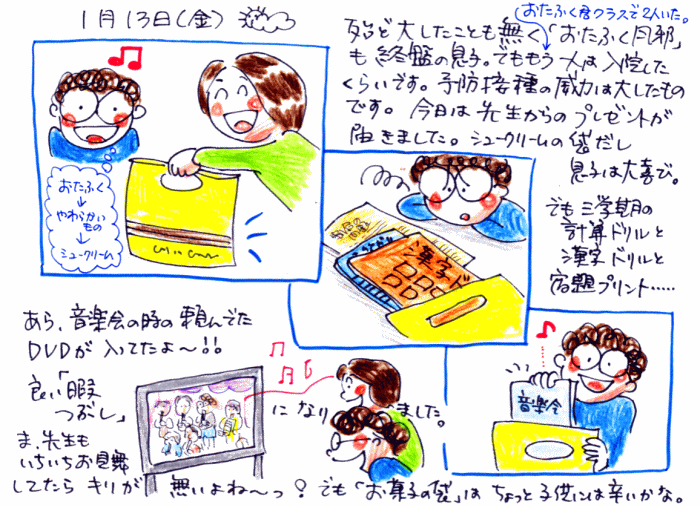 1月13日(金)
(おたふく君クラスで2人いた。
殆ど大したことも無く「おたふく風邪」
も終盤の息子。でももう一人は入院した
くらいです。予防接種の威力は大したもの
です。今日は先生からのプレゼントが
届きました。シュークリームの袋だし
息子は大喜び。
おたふく
↓
やわらかい
もの
↓
シュークリーム
でも三学期の
計算ドリルと
漢字ドリルと
宿題プリント.....
漢字ド
あら、音楽会の時の頼んでた
DVDが入ってたよ〜!!
音楽会
良い「暇
つぶし」
になりました。
ま、先生も
いちいちお見舞
してたらキリが無いよね〜っ?でも「お菓子の袋」はちょっと子供には辛いかな。